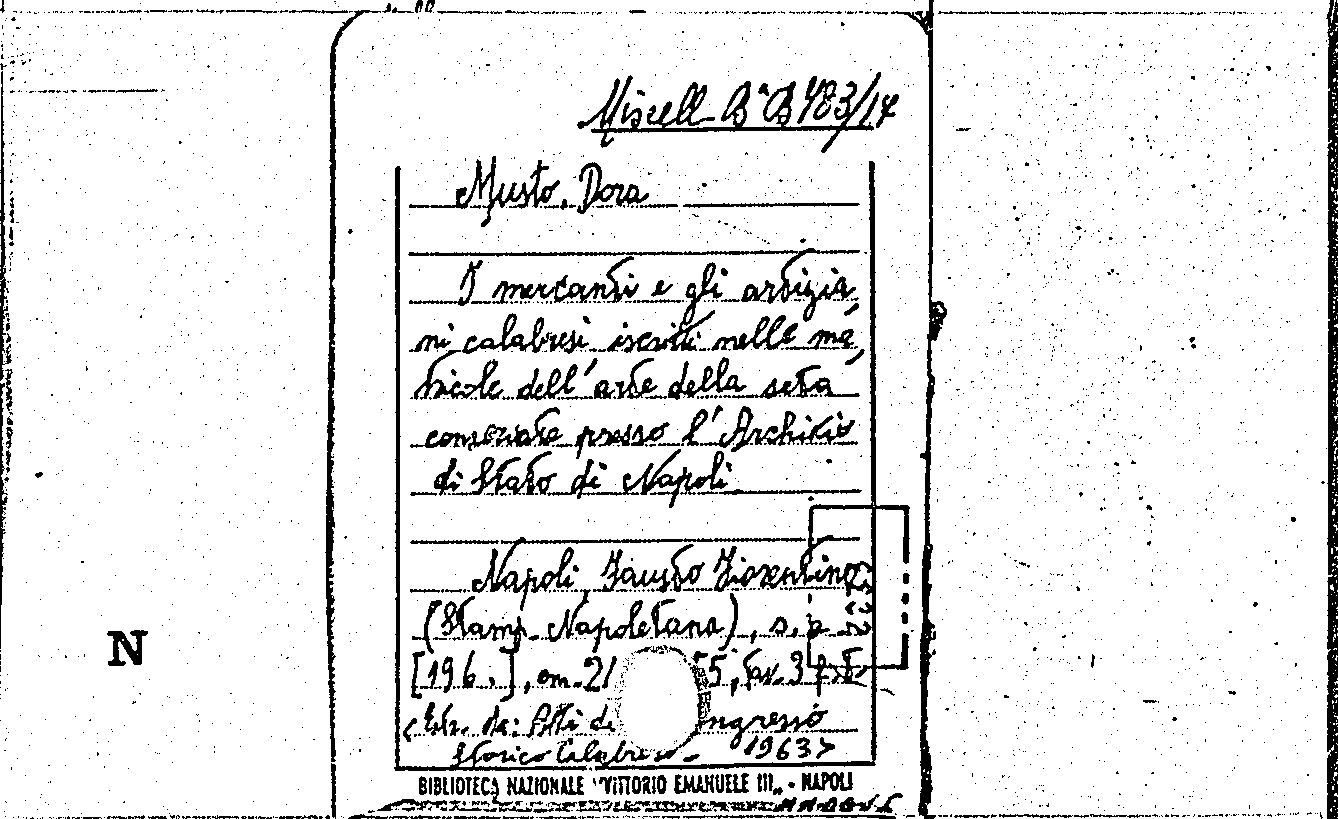 Miscell. Bᵃ B 483/14
Musto, Dora
I mercanti e gli artigia,
ni calabresi iscritti nelle ma,
tricole dell'arte della seta
conservate presso l'Archivio
di Stato di Napoli.
Napoli, Fausto Fiorentino
(Stamp. Napoletana), s.a.
[196.], cm. 21 55, tav. 3 f.t.
<Estr. da: Atti de ngresso
Storico Calabrese 1963>
BIBLIOTECA NAZIONALE "VITTORIO EMANUELE III„ - NAPOLI
N